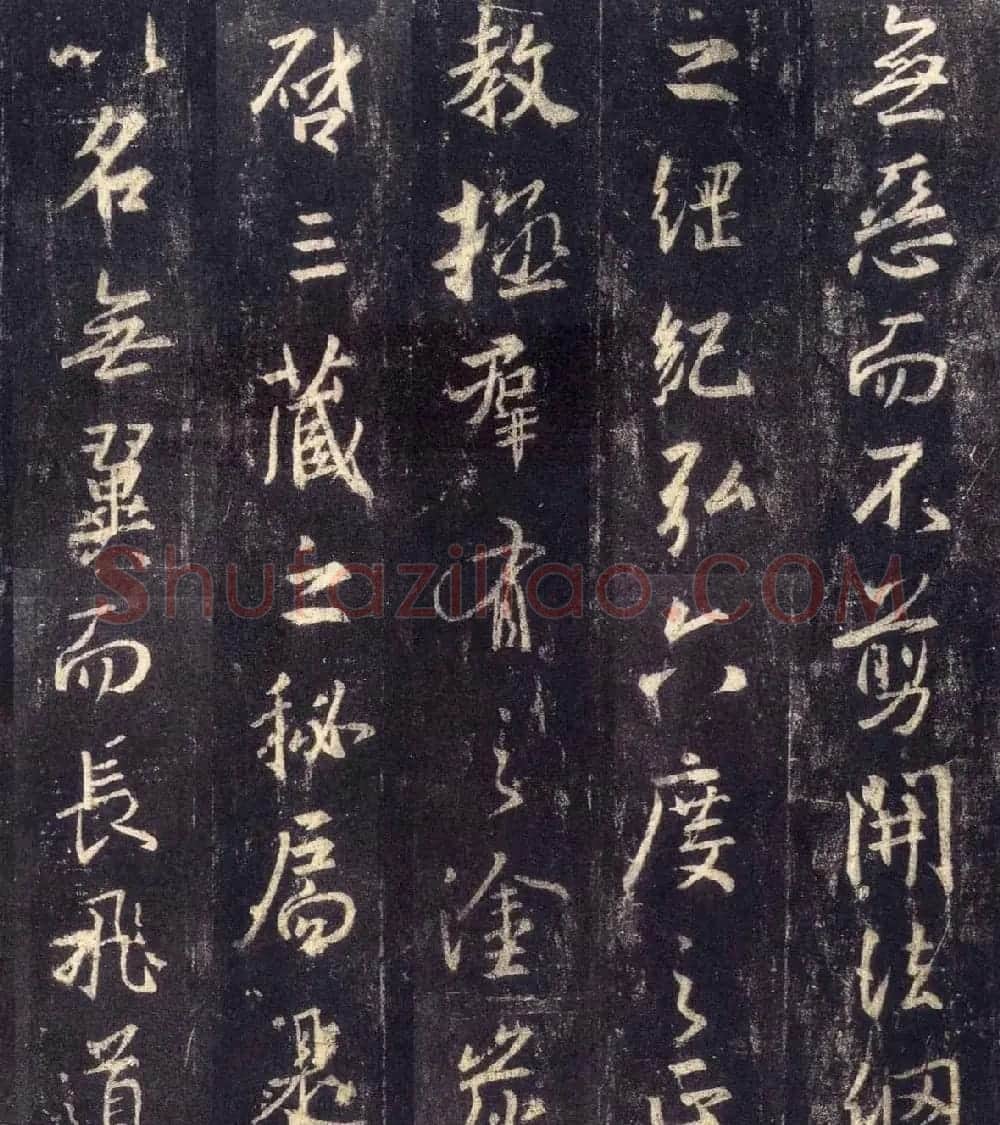 無惡而不剪開法網
之綱紀弘六度之正
教拯群有之塗炭
啓三藏之秘扃是
以名無翼而長飛道
Shufaziliao.COM